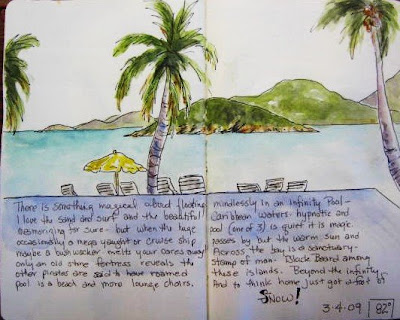 There is something magical about floating mindlessly in an infinity Pool -
I love the sand and surf and the beautiful Caribbean waters - hypnotic and
mesmorizing for sure - but when the huge pool (one of 3) is quiet it is magic
occasionally a mega yaught or cruise ship passes by but the warm sun and
maybe a bushwacker melts your cares away! Across the bay is a sanctuary -
only an old stone fortress reveals the Stamp of man - Black Beard among
other pirates are said to have roamed these islands. Beyond the infinity
pool is a beach and more lounge chairs. And to think home just got a foot of
Snow!
3-4-09 82°